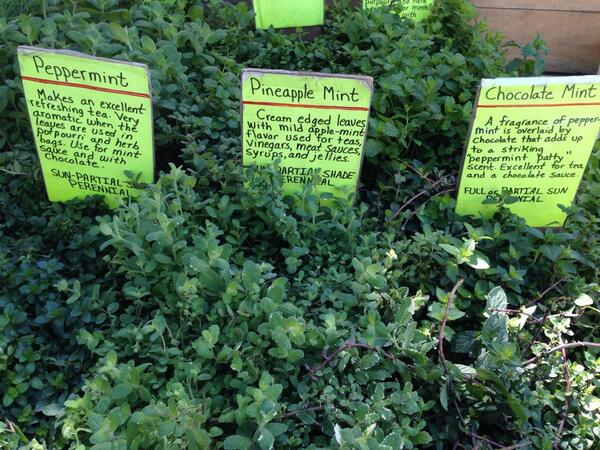 Peppermint
Makes an excellent
refreshing tea. Very
aromatic when the
leaves are used in
potpourri, and herb
bags. Use for mint
sauce and with
chocolate.
SUN-PARTIAL
PERENNIAL
Pineapple Mint
Cream edged leaves
with mild apple-mint
flavor used for teas,
Vinegars, meat sauces,
syrups, and jellies.
PARTIAL SHADE
PERENNIAL
Chocolate Mint
A fragrance of pepper-
mint is overlaid by
chocolate that adds up
to a striking
"peppermint patty"
scent. Excellent for tea
and a chocolate sauce.
FULL or PARTIAL SUN
PERENNIAL